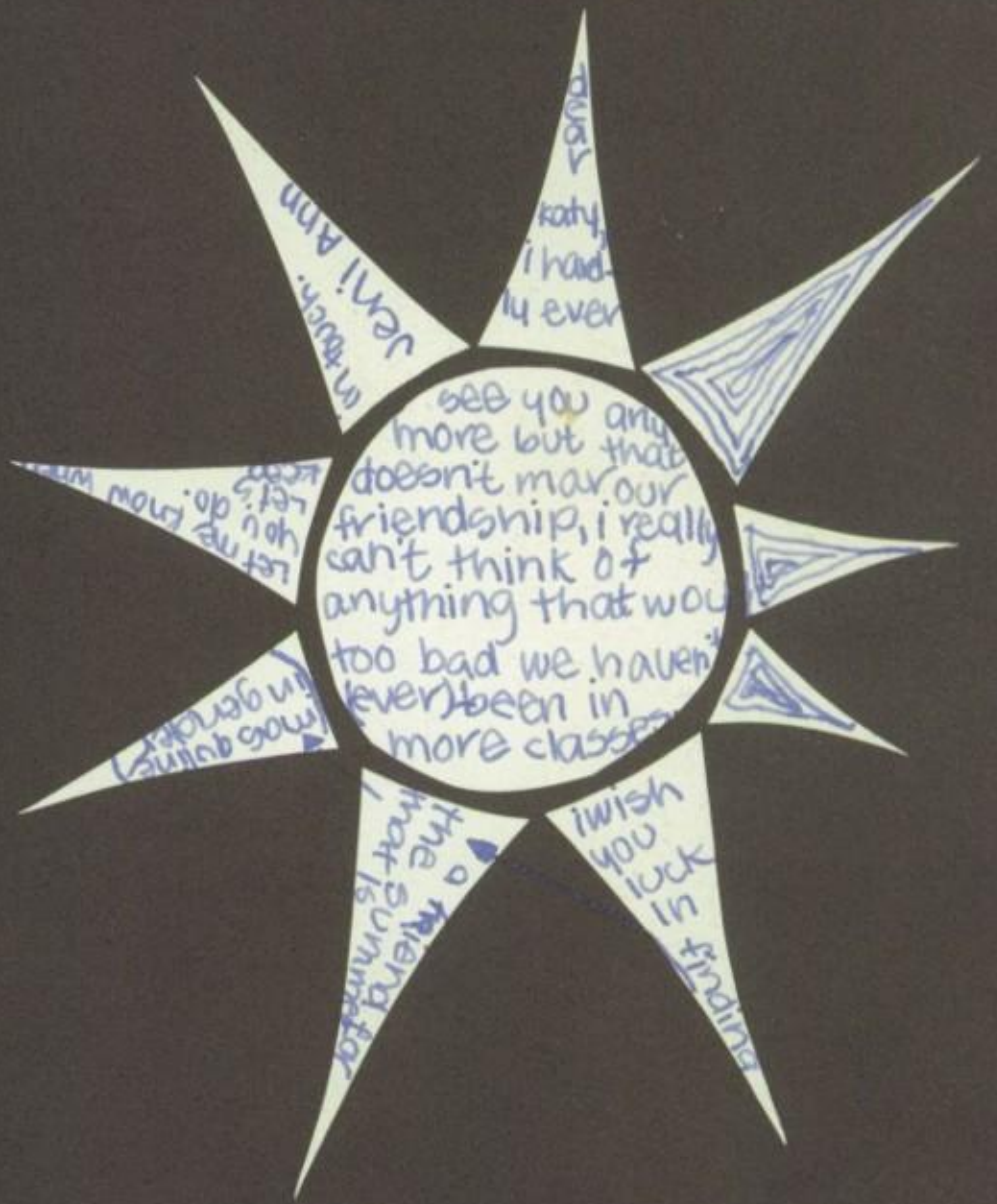 dear
katy,
i hard-
ly ever
see you any
more but that
doesn't mar our
friendship, i really
can't think of
anything that wou
too bad we haven't
(ever) been in
more classes
i wish
you
luck
in finding
a friend for
the summer
that is
(masquline
in gender)
Let me know wh
you do.
Let's
keep
in touch.
Jeni Ann